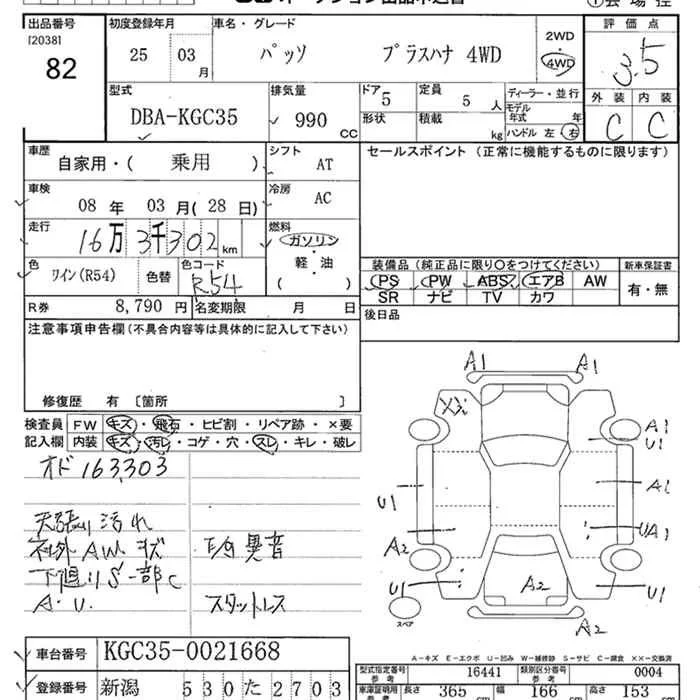 出品番号 初度登録年月 車名・グレード 評価点
[2038] 25 03 月 パッソ プラスハナ 4WD 2WD 4WD 3.5
82
型式 排気量 ドア 定員 ディーラー・並行 外装 内装
DBA-KGC35 990 CC 5 5 人 モデル年式 年 C C
形状 積載 kg ハンドル 左 右
車歴 自家用・( 乗用 ) シフト AT セールスポイント (正常に機能するものに限ります)
車検 08 年 03 月 ( 28 日) 冷房 AC
走行 16万3千302 km 燃料 ガソリン
軽・油
( )
色 ワイン(R54) 色替 色コード R54
装備品 (純正品に限り○をつけてください) 新車保証書
PS PW ABS エアB AW 有・無
SR ナビ TV カワ
R券 8,790 円 名変期限 月 日 後日品
注意事項申告欄 (不具合内容等は具体的に記入して下さい)
修復歴 有 〔箇所 〕
検査員 FW キズ・飛石・ヒビ割・リペア跡・×要
記入欄 内装 キズ・汚レ・コゲ・穴・スレ・キレ・破レ
オド 163,303
天張り汚れ
社外AWキズ
下廻りS一部C
A.U. スタットレス
A1 A1
XX A1
U1
U1 A1
A2 UA1
U1 A2 U1
スペア A2
A-キズ E-エクボ U-凹み W-補修跡 S-サビ C-腐食 XX-交換済
車台番号 KGC35-0021668
型式指定番号 参考 16441 類別区分番号 参考 0004
登録番号 新潟 530 た 2703
車庫証明用 参考 長さ 365 cm 幅 166 cm 高さ 153 cm